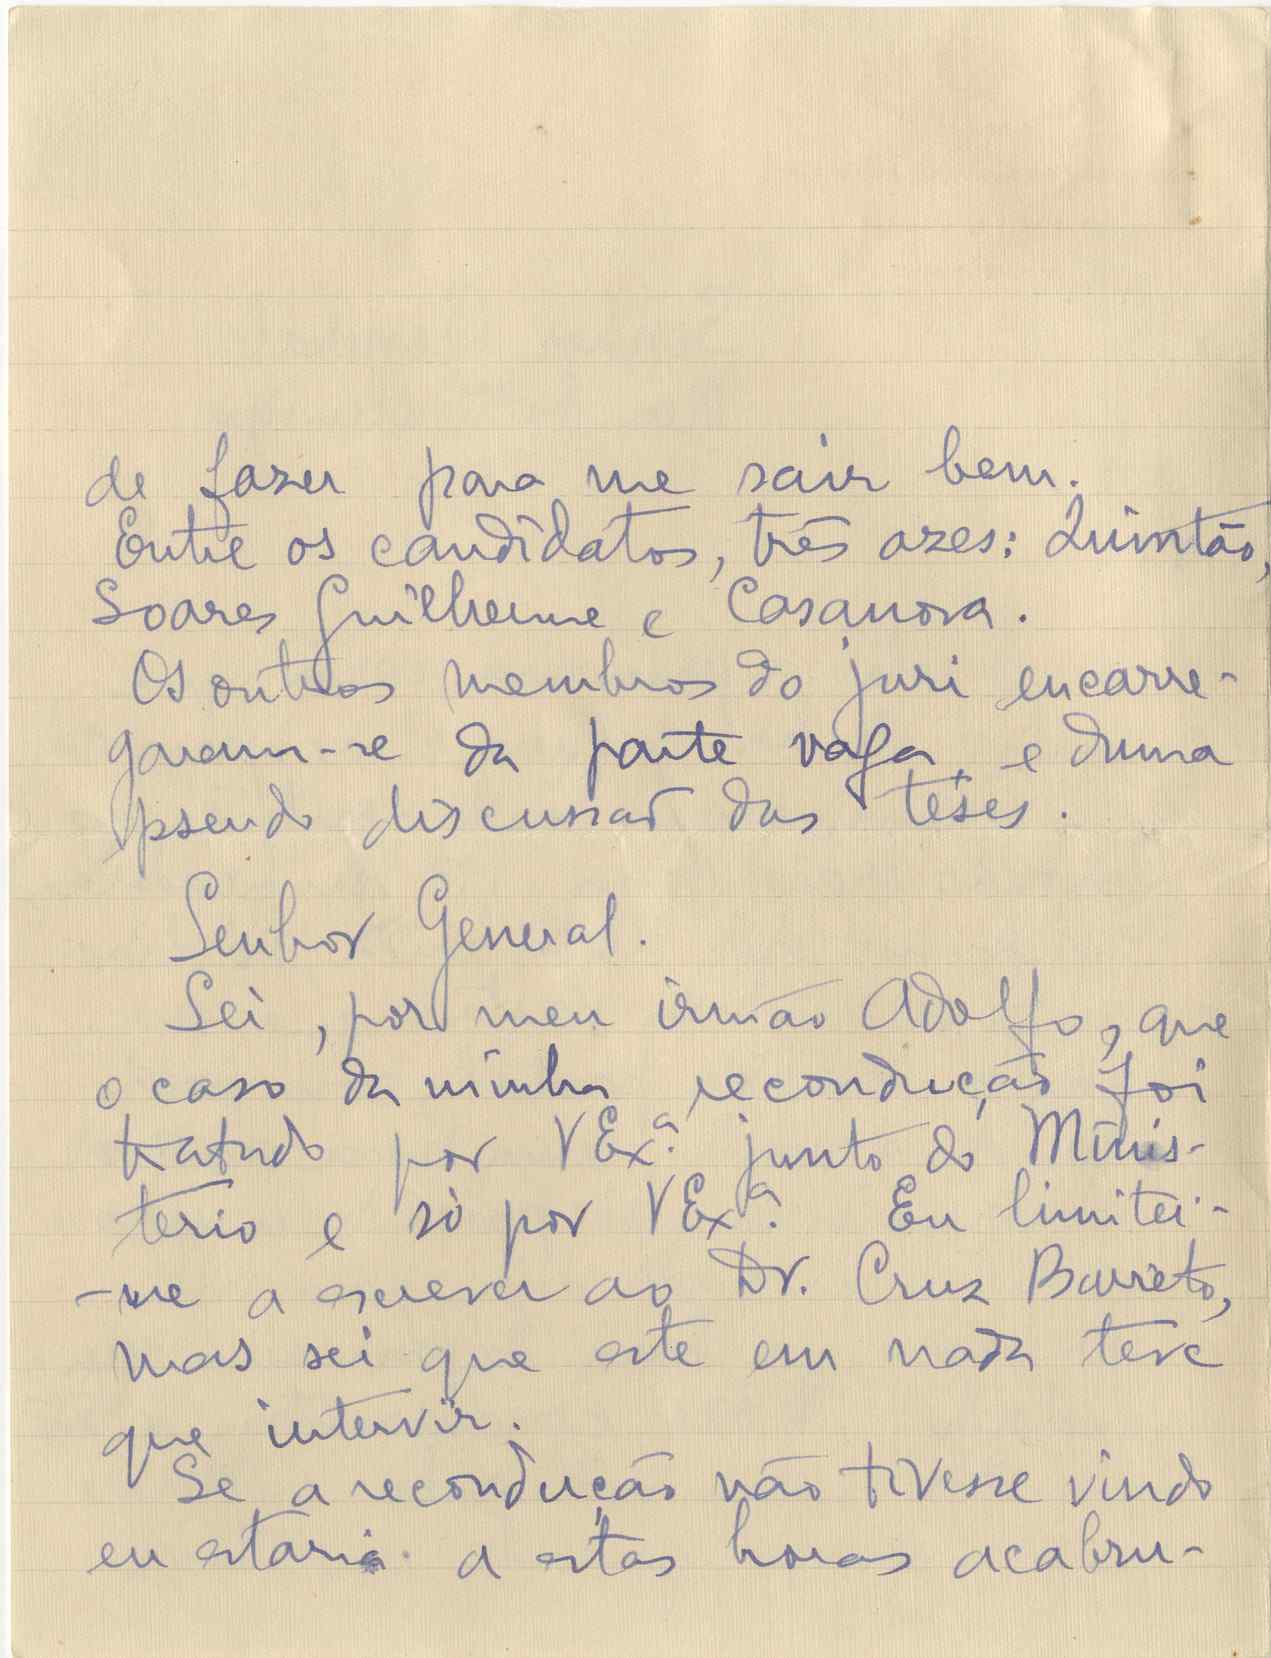 de fazer para me sair bem.
Entre os candidatos, três azes: Quintão,
Soares Guilherme e Casanova.
Os outros membros do juri encarre-
garam-se da parte vaga, e duma
pseudo discussão das téses.
Senhor General.
Sei, por meu irmão Adolfo, que
o caso da minha recondução foi
tratado por VExª. junto do Minis-
terio e só por VExª. Eu limitei-
-me a escrever ao Dr. Cruz Barreto,
mas sei que este em nada teve
que intervir.
Se a recondução não tivesse vindo
eu estaria a estas horas acabru-